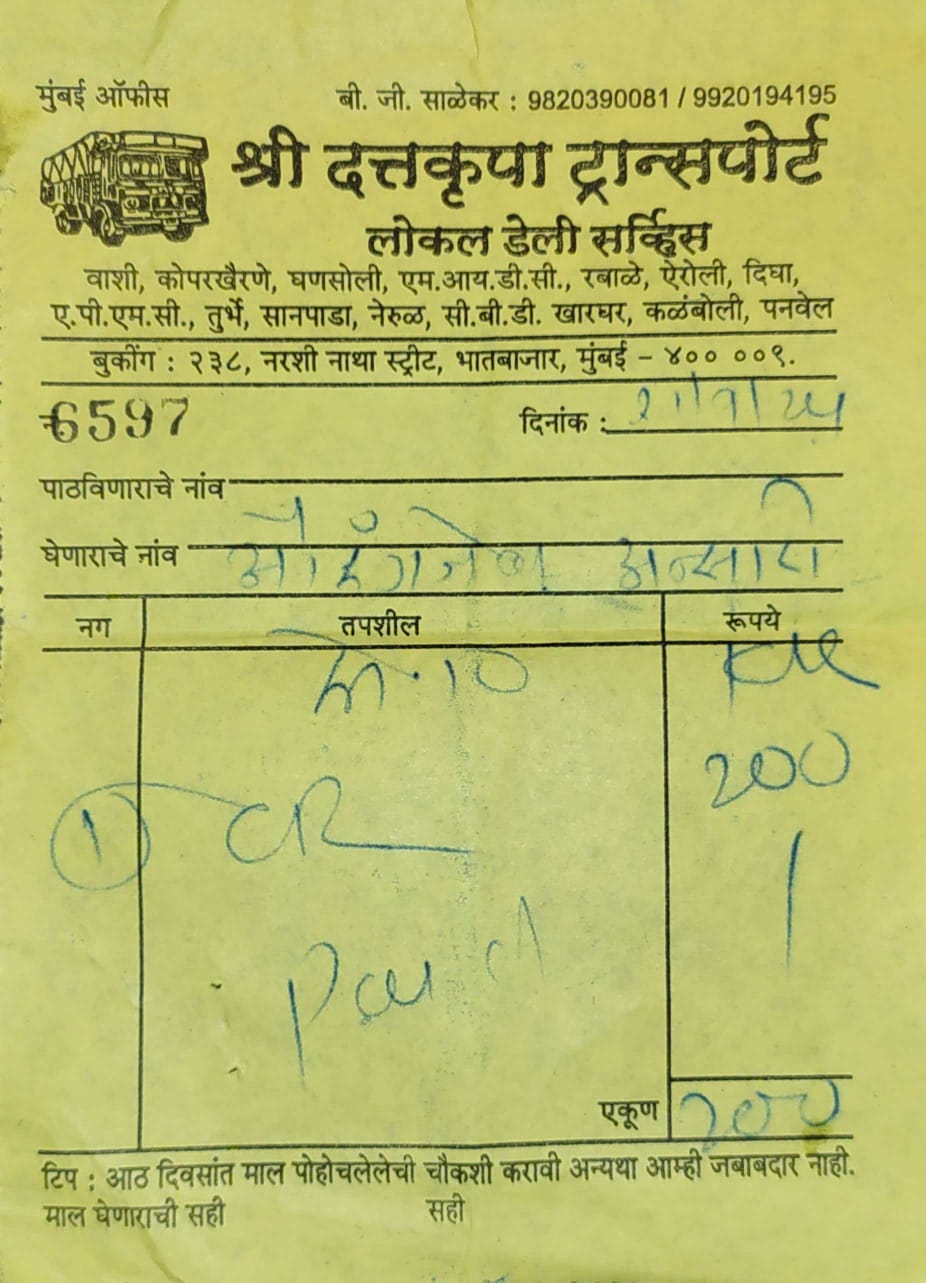 मुंबई ऑफीस बी. जी. साळेकर : 9820390081 / 9920194195
श्री दत्तकृपा ट्रान्सपोर्ट
लोकल डेली सर्व्हिस
वाशी, कोपरखैरणे, घणसोली, एम.आय.डी.सी., रबाळे, ऐरोली, दिघा,
ए.पी.एम.सी., तुर्भे, सानपाडा, नेरुळ, सी.बी.डी. खारघर, कळंबोली, पनवेल
बुकींग : २३८, नरशी नाथा स्ट्रीट, भातबाजार, मुंबई – ४०० ००९.
6597 दिनांक :
पाठविणाराचे नांव
घेणाराचे नांव औरंगजेब अन्सारी
नग तपशील रूपये
200
1
Paid
एकूण 200
टिप : आठ दिवसांत माल पोहोचलेलेची चौकशी करावी अन्यथा आम्ही जबाबदार नाही.
माल घेणाराची सही सही